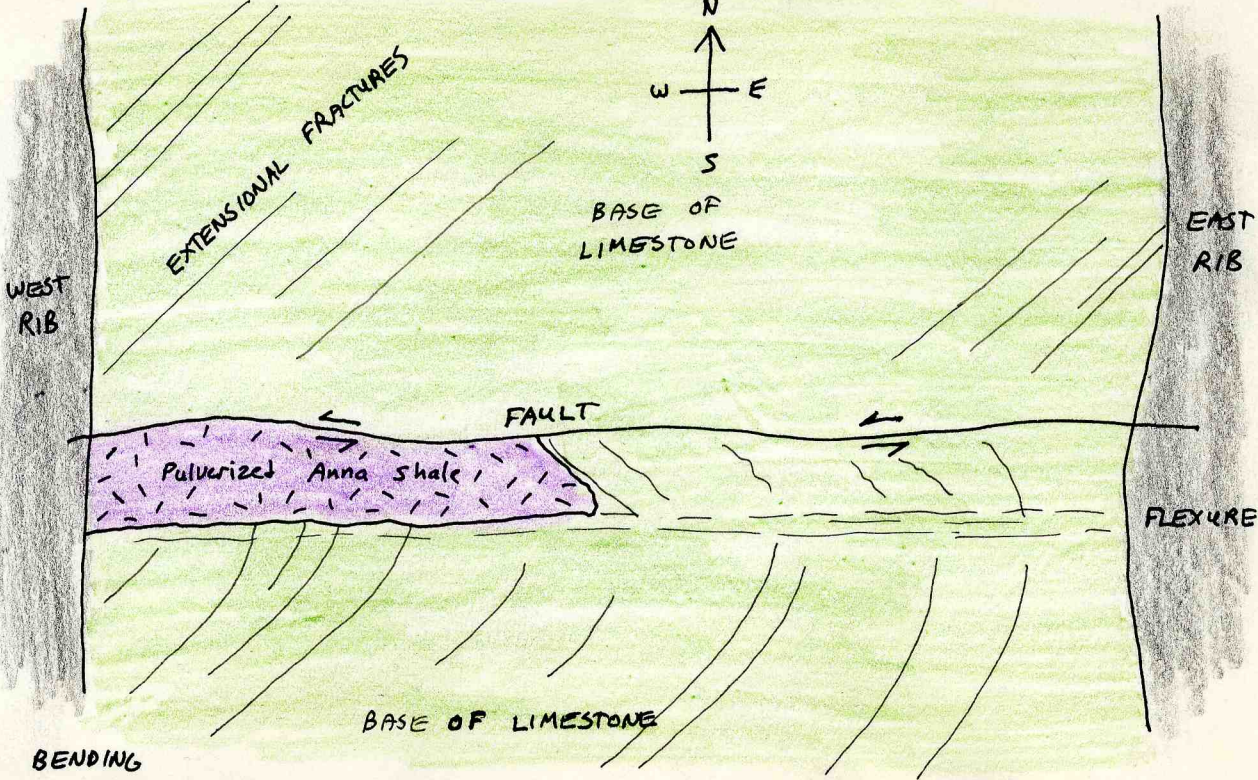 N
W E
S
EXTENSIONAL FRACTURES
BASE OF
LIMESTONE
WEST
RIB
EAST
RIB
FAULT
Pulverized Anna shale
FLEXURE
BASE OF LIMESTONE
BENDING